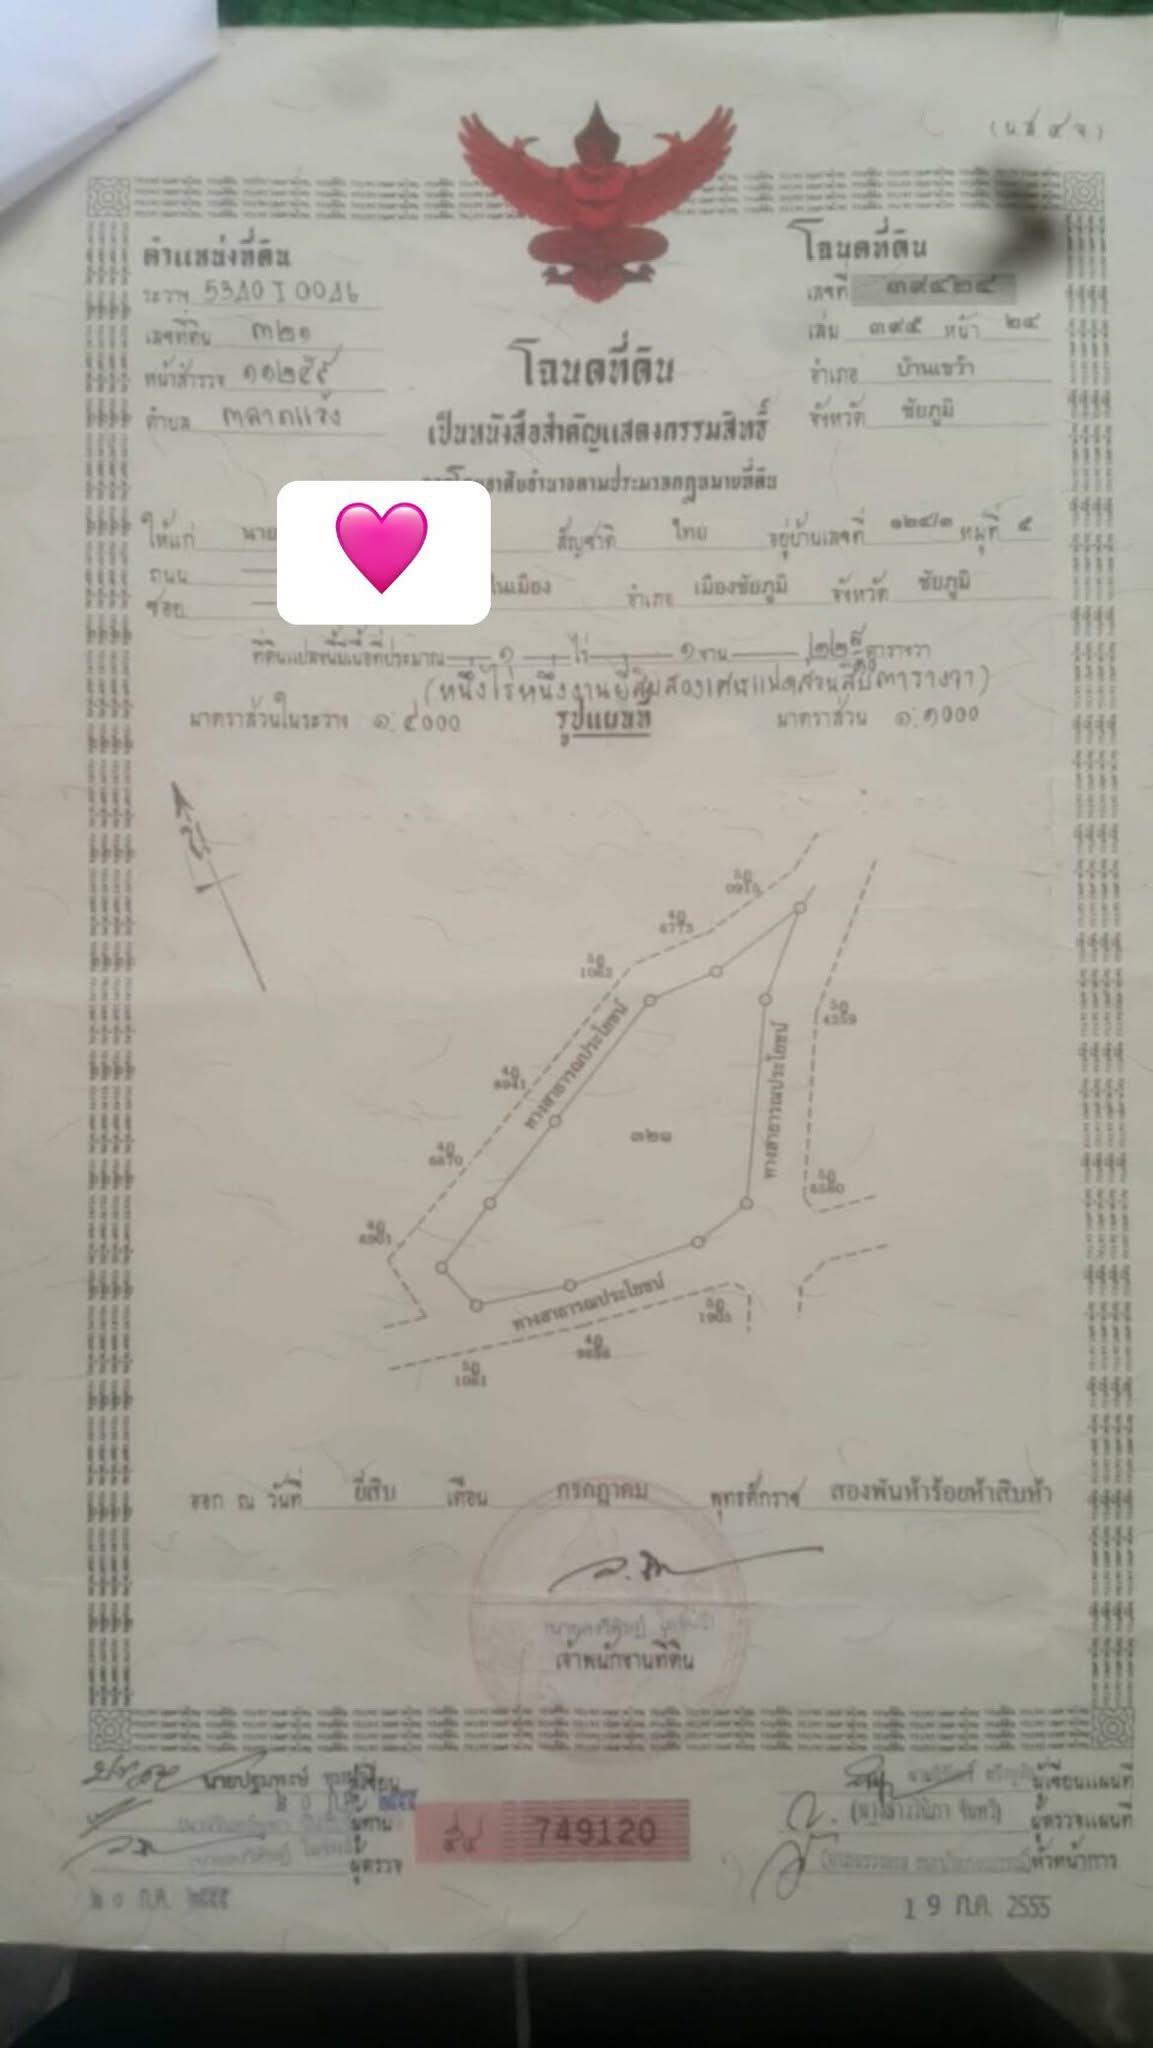 (น.ส.๔ จ.)
ตำแหน่งที่ดิน
ระวาง 5340 I 0046
เลขที่ดิน ๓๒๑
หน้าสำรวจ ๑๑๒๕๙
ตำบล ตลาดแร้ง
โฉนดที่ดิน
เลขที่ ๓๙๔๒๔
เล่ม ๓๙๕ หน้า ๒๔
อำเภอ บ้านเขว้า
จังหวัด ชัยภูมิ
โฉนดที่ดิน
เป็นหนังสือสำคัญแสดงกรรมสิทธิ์
อาศัยอำนาจตามประมวลกฎหมายที่ดิน
ให้แก่ นาย สัญชาติ ไทย อยู่บ้านเลขที่ ๑๒๔/๓ หมู่ที่ ๕
ถนน ในเมือง อำเภอ เมืองชัยภูมิ จังหวัด ชัยภูมิ
ซอย
ที่ดินแปลงนี้มีเนื้อที่ประมาณ ๑ ไร่ ๑ งาน ๒๒ ๘/๑๐ ตารางวา
(หนึ่งไร่หนึ่งงานยี่สิบสองเศษแปดส่วนสิบตารางวา)
มาตราส่วนในระวาง ๑:๔๐๐๐ รูปแผนที่ มาตราส่วน ๑:๑๐๐๐
น.
5ฎ
4ฎ
6773
5ฎ
5ฎ
4359
4ฎ
ทางสาธารณประโยชน์
ทางสาธารณประโยชน์
๓๒๑
4ฎ
6870
5ฎ
4ฎ
6901
ทางสาธารณประโยชน์
5ฎ
4ฎ
5ฎ
1061
ออก ณ วันที่ ยี่สิบ เดือน กรกฎาคม พุทธศักราช สองพันห้าร้อยห้าสิบห้า
เจ้าพนักงานที่ดิน
นายปฐมพงษ์ ผู้เขียน
๒๐ ก.ค. ๒๕๕๕
ผู้ทาน
ผู้ตรวจ
๒๐ ก.ค. ๒๕๕๕
๕๔ 749120
ผู้เขียนแผนที่
ผู้ตรวจแผนที่
หัวหน้าการ
19 ก.ค. 2555